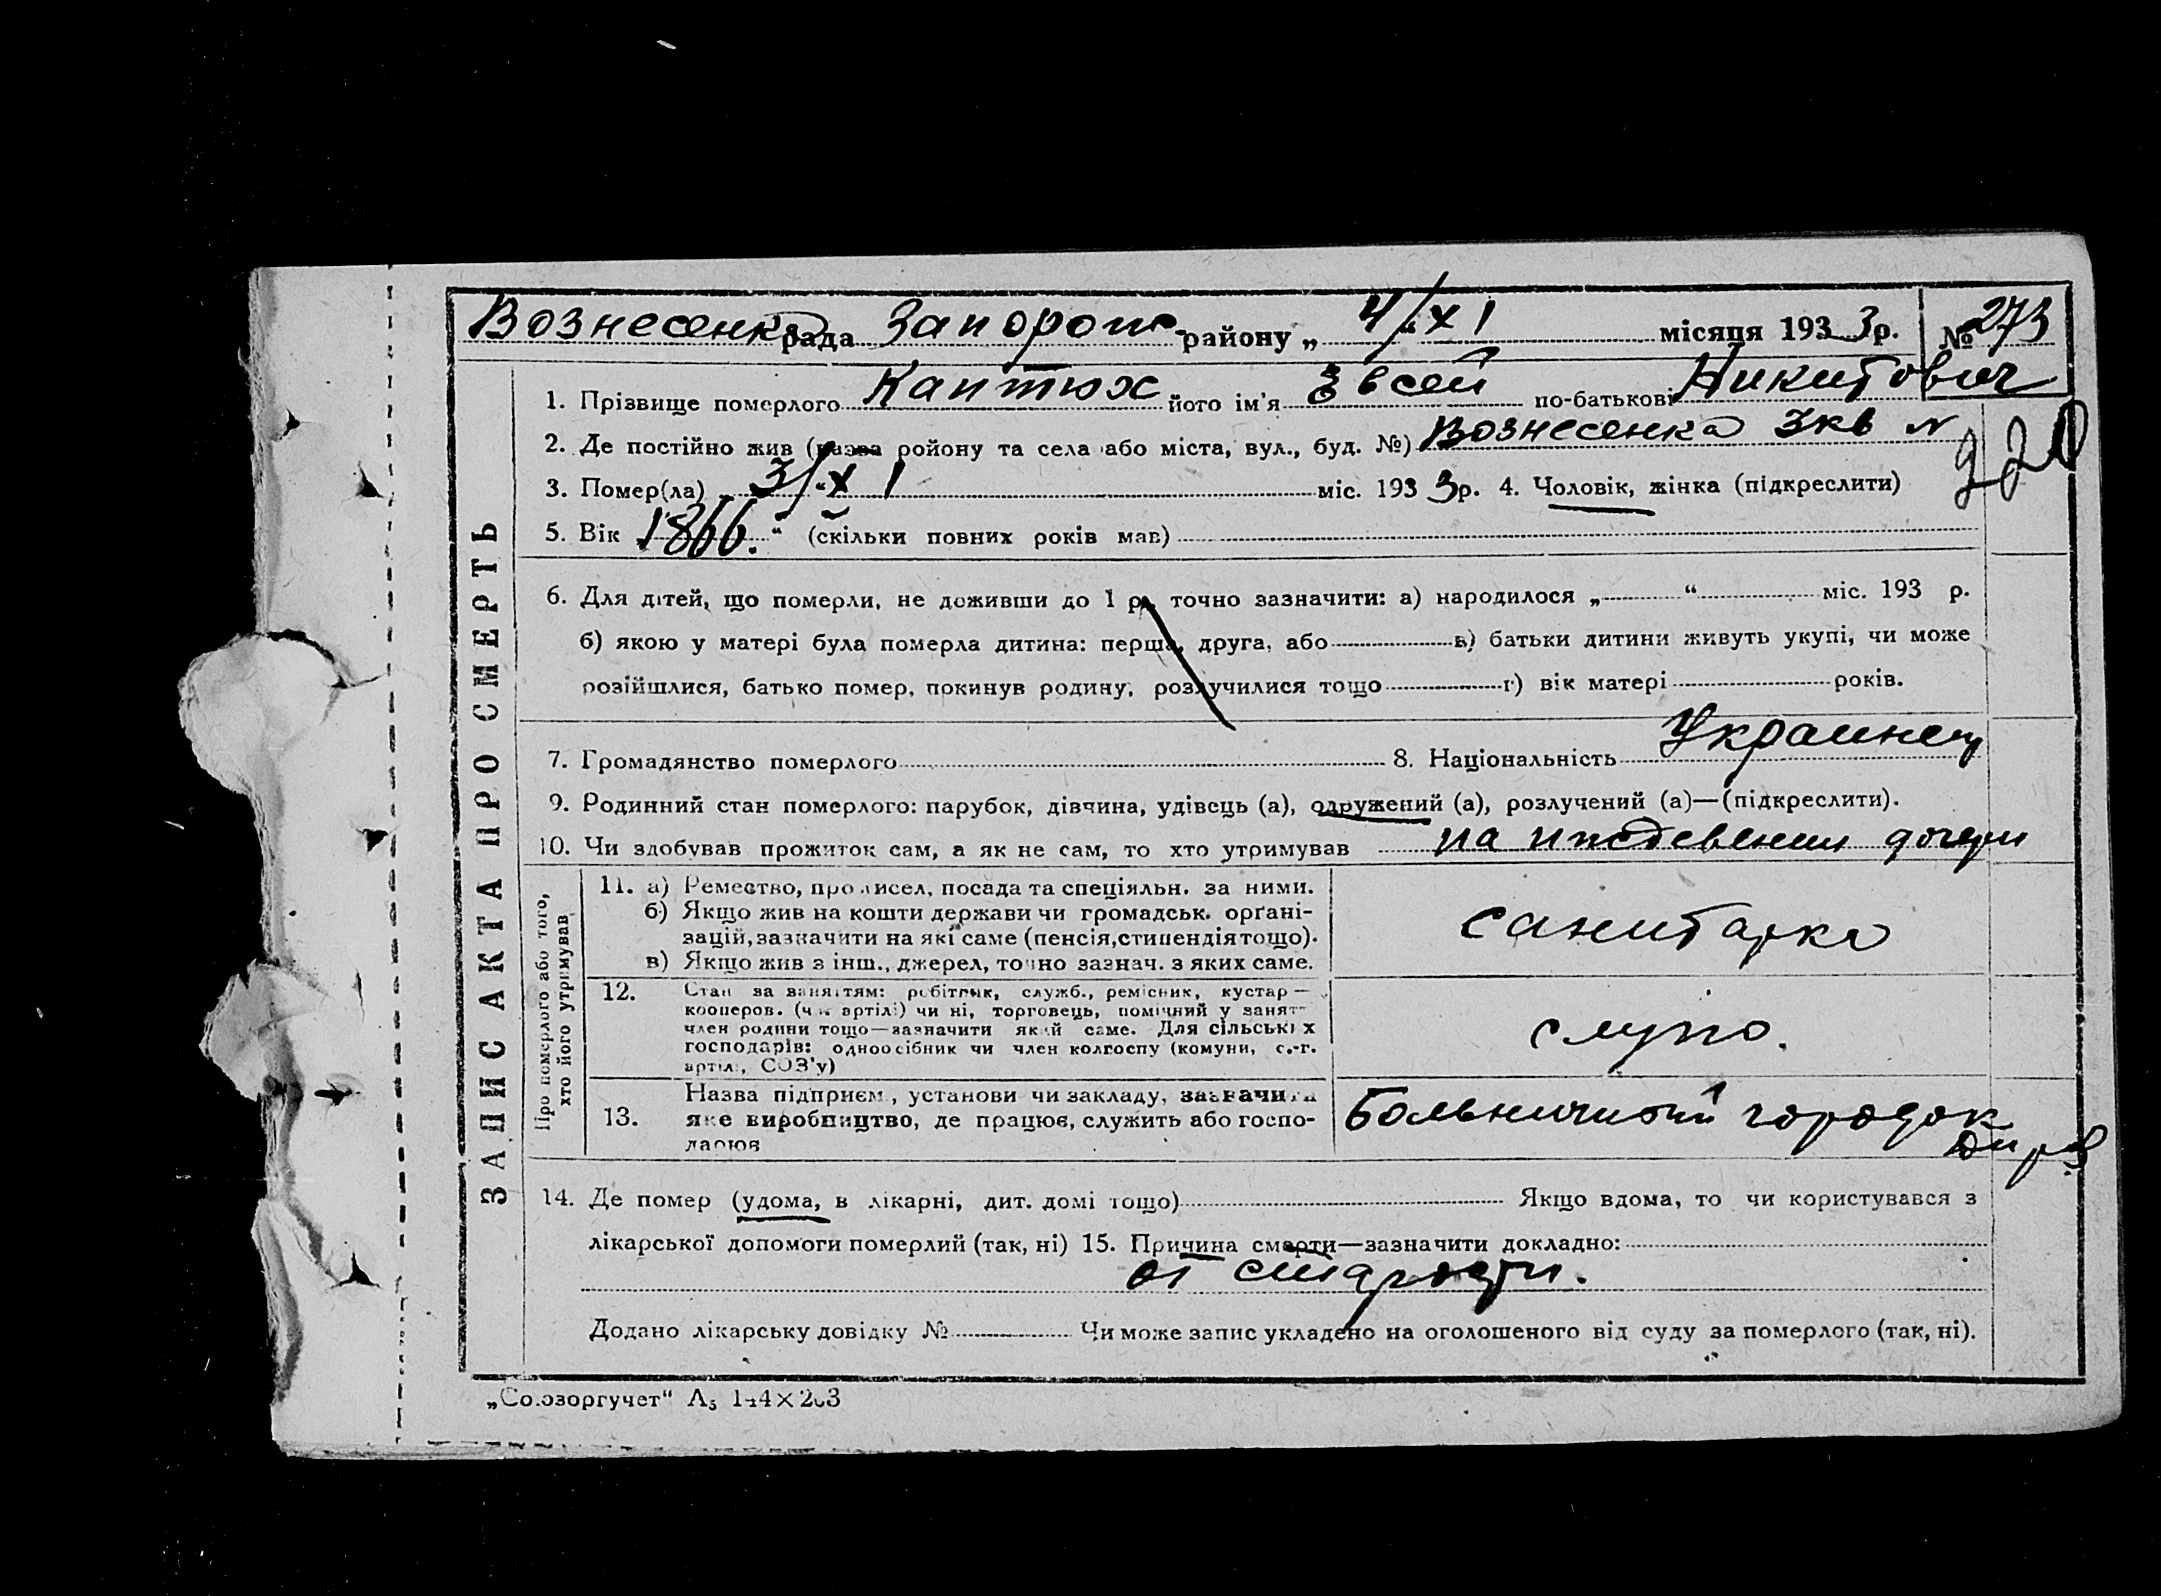 Вознесенка рада Запорож. району „ 4/XI місяця 1933 р. № 273
1. Прізвище померлого Каптюх його ім'я Евсей по-батькові Никитович
2. Де постійно жив (назва ройону та села або міста, вул., буд. №) Вознесенка 3кв N
220
3. Помер(ла) 3/„XI міс. 1933р. 4. Чоловік, жінка (підкреслити)
5. Вік „1866.“ (скільки повних років мав)
6. Для дітей, що померли, не доживши до 1 р. точно зазначити: а) народилося „ “ міс. 193 р.
б) якою у матері була померла дитина: перша, друга, або в) батьки дитини живуть укупі, чи може
розійшлися, батько помер, покинув родину, розлучилися тощо г) вік матері років.
7. Громадянство померлого 8. Національність Украинец
9. Родинний стан померлого: парубок, дівчина, удівець (а), одружений (а), розлучений (а)—(підкреслити).
10. Чи здобував прожиток сам, а як не сам, то хто утримував на иждевении дочери
ЗАПИС АКТА ПРО СМЕРТЬ
Про померлого або того,
хто його утримував
11. а) Ремество, промисел, посада та спеціяльн. за ними.
б) Якщо жив на кошти держави чи громадськ. орґані-
зацій, зазначити на які саме (пенсія, стипендія тощо).
в) Якщо жив з інш., джерел, точно зазнач. з яких саме.
санитарка
12. Стан за заняттям: робітник, служб., ремісник, кустар—
кооперов. (чи артілі) чи ні, торговець, помічний у занятт
член родини тощо—зазначити який саме. Для сільських
господарів: одноосібник чи член колгоспу (комуни, с.-г.
артілі, СОЗ'у)
служ.
13. Назва підприєм., установи чи закладу, зазначити
яке виробництво, де працює, служить або госпо-
дарює
Больничный городок
14. Де помер (удома, в лікарні, дит. домі тощо) Якщо вдома, то чи користувався з
лікарської допомоги померлий (так, ні) 15. Причина смерти—зазначити докладно:
от старости.
Додано лікарську довідку № Чи може запис укладено на оголошеного від суду за померлого (так, ні).
„Союзоргучет“ А₅ 144×203